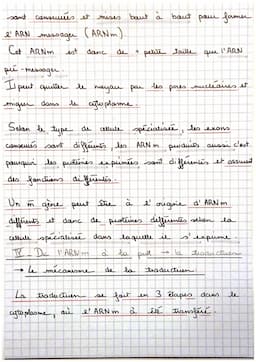 sont conservés et mises bout à bout pour former
l'ARN messager (ARNm)
Cet ARNm est donc de + petite taille que l'ARN
pré-messager.
Il peut quitter le noyau par les pores nucléaires et
migrer dans le cytoplasme.
Selon le type de cellule spécialisée, les exons
conservés sont différents, les ARNm produits aussi c'est
pourquoi les protéines exprimées sont différentes et assurent
des fonctions différentes.
Un m̂ gène peut être à l'origine d'ARNm
différents et donc de protéines différentes selon la
cellule spécialisée dans laquelle il s'exprime.
IV - De l'ARNm à la prot → la traduction
→ Le mécanisme de la traduction
La traduction se fait en 3 étapes dans le
cytoplasme, où l'ARNm à été transféré.